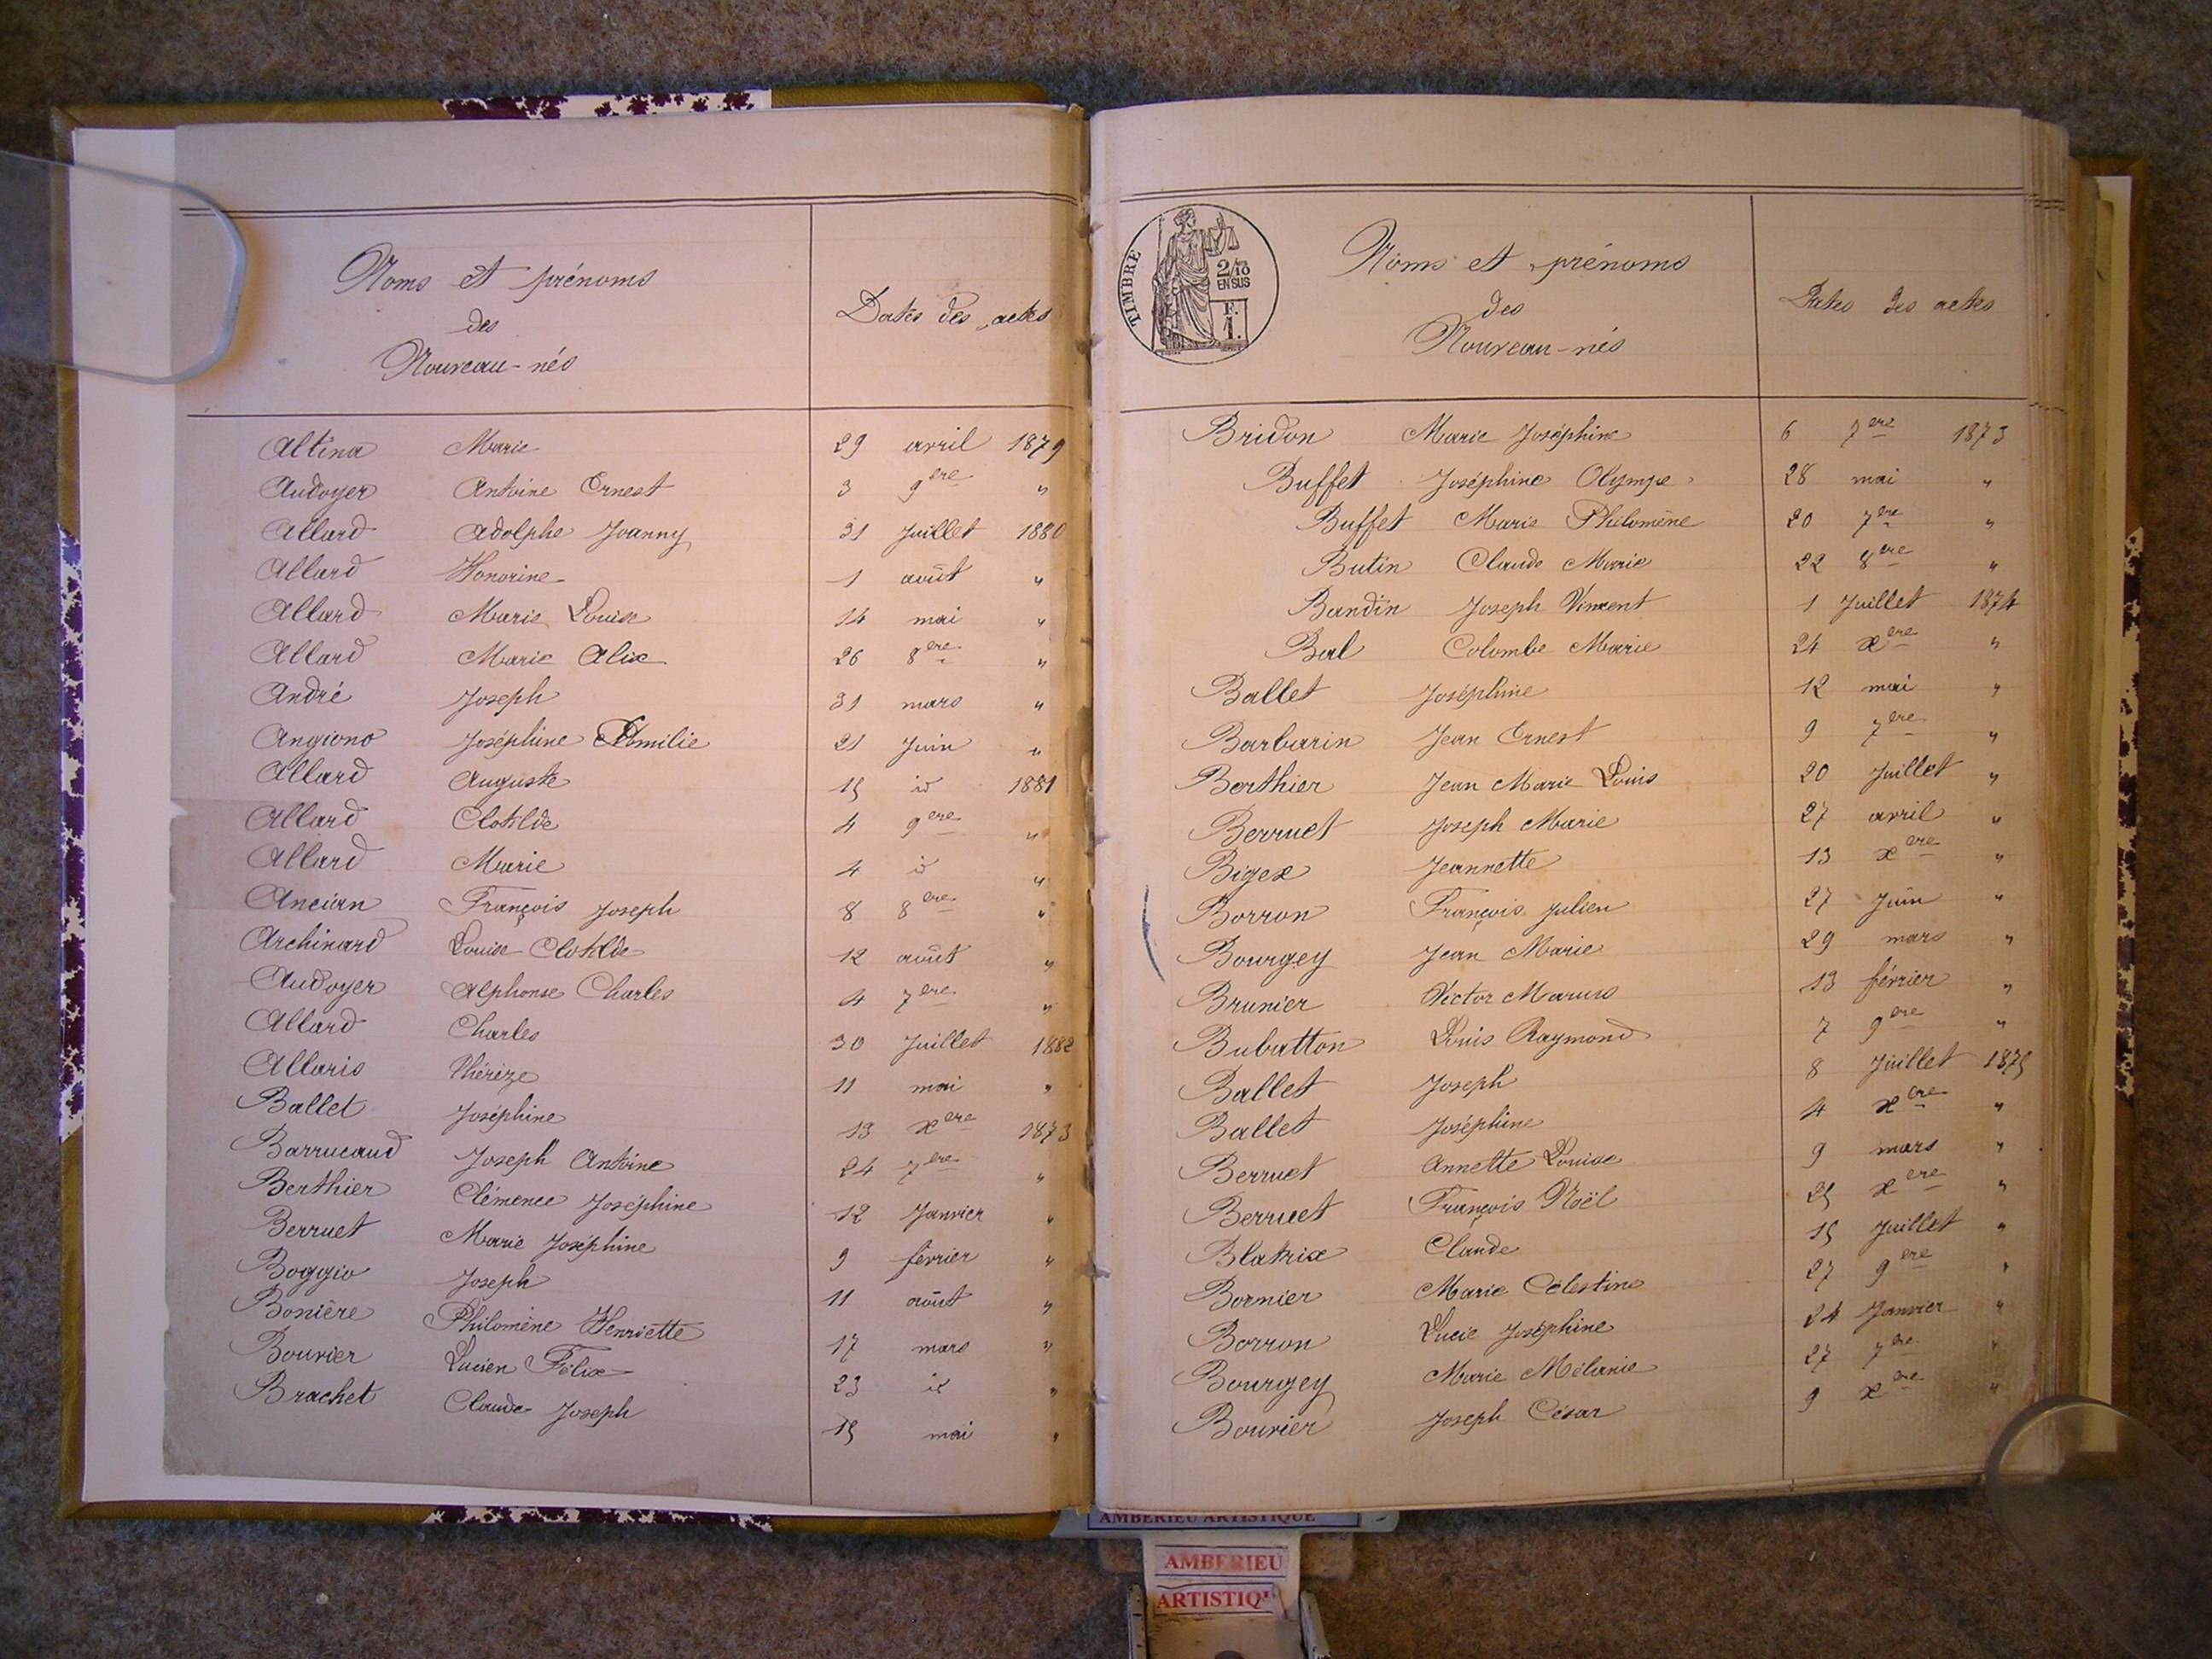 Noms et prénoms
des
Nouveau-nés
Dates des actes
Altina Marie 29 avril 1879
Audoyer Antoine Ernest 3 9ere "
Allard Adolphe Joanny 31 Juillet 1880
Allard Honorine 1 août "
Allard Marie Louise 14 mai "
Allard Marie Alix 26 8ere "
André Joseph 31 mars "
Angiono Joséphine Emilie 21 Juin "
Allard Auguste 15 id 1881
Allard Clotilde 4 9ere "
Allard Marie 4 id "
Ancian François Joseph 8 8ere "
Archinard Louise Clotilde 12 août "
Audoyer Alphonse Charles 4 7ere "
Allard Charles 30 Juillet 1882
Allaris Thérèze 11 mai "
Ballet Joséphine 13 xere 1873
Barrucaud Joseph Antoine 24 7ere "
Berthier Clémence Joséphine 12 Janvier "
Berruet Marie Joséphine 9 février "
Boggio Joseph 11 août "
Bonière Philomène Henriette 17 mars "
Bouvier Lucien Félix 23 id "
Brachet Claude Joseph 15 mai "
TIMBRE
2/10
EN SUS
F.
1.
Noms et prénoms
des
Nouveau-nés
Dates des actes
Bridon Marie Joséphine 6 7ere 1873
Buffet Joséphine Olympe 28 mai "
Buffet Marie Philomène 20 7ere "
Butin Claude Marie 22 8ere "
Baudin Joseph Vincent 1 Juillet 1874
Bal Colombe Marie 24 xere "
Ballet Joséphine 12 mai "
Barbarin Jean Ernest 9 7ere "
Berthier Jean Marie Louis 20 Juillet "
Berruet Joseph Marie 27 avril "
Bigex Jeannette 13 xere "
Borron François Julien 27 Juin "
Bourgey Jean Marie 29 mars "
Brunier Victor Marius 13 février "
Bubatton Louis Raymond 7 9ere "
Ballet Joseph 8 Juillet 1875
Ballet Joséphine 4 xere "
Berruet Annette Louise 9 mars "
Berruet François Noël 25 xere "
Blatrix Claude 15 Juillet "
Bornier Marie Célestine 27 9ere "
Borron Lucie Joséphine 24 Janvier "
Bourgey Marie Mélanie 27 7ere "
Bouvier Joseph César 9 xere "
AMBERIEU ARTISTIQUE
AMBERIEU
ARTISTIQ